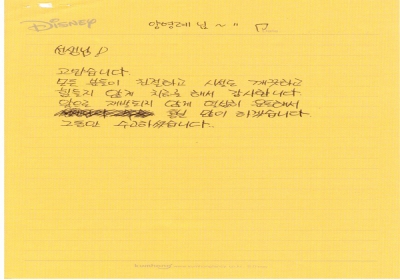 DISNEY
양형례 님 ~ "
선생님
고맙습니다.
모든 분들이 친절하고 시설도 깨끗하고
힘들지 않게 치료를 해서 감사합니다
앞으로 재발되지 않게 열심히 운동해서
많이 하겠습니다.
그동안 수고하셨습니다.